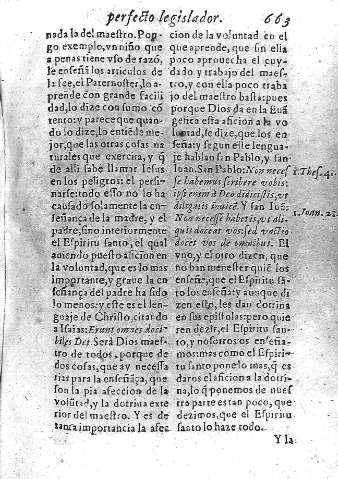 perfecto legislador. 663
nada la del maestro. Pon-
go exemplo, vn niño que
a penas tiene vso de razõ,
le enseñã los articulos de
la fee, el Paternoster, lo a-
prende con grande facili
dad, lo dize con sumo cõ
tento: y parece que quan-
do lo dize, lo entiẽde me-
jor, que las otras cosas na
turales que exercita, y q̃
de alli sabe llamar Iesus
en los peligros: el persi-
narse: todo esso no lo ha
causado solamente la en-
señança de la madre, y el
padre, sino interiormente
el Espiritu santo, el qual
auiendo puesto aficion en
la voluntad, que es lo mas
importante, y graue la en
señança del padre ha sido
lo menos: y este es el len-
guaje de Christo, citando
a Isaias: Erunt omnes doci
biles Dei Será Dios maes-
tro de todos, porque de
dos cosas, que ay necessa
rias para la enseñãça, que
son la pia afeccion de la
volũtad, y la dotrina exte
rior del maestro. Y es de
tanta importancia la afec
cion de la voluntad en el
que aprende, que sin ella
poco aprouecha el cuy-
dado, y trabajo del maes-
tro, y con ella poco traba
jo del maestro basta: pues
porque Dios da en la Euã
gelica esta aficion a la vo
luntad, se dize, que los en-
seña: y segun este lengua-
je hablan san Pablo, y san
Iuan. San Pablo: Non necesse 1. Thes. 4.
se habemus scribere vobis:
ipsi enim à Deo didicistis, vt
diligatis inuicẽ. Y san Iuã:
Non necesse habetis, vt ali- 1. Ioan. 2.
quis doceat vos: sed vnctio
docet vos de omnibus. El
vno, y el otro dizen, que
no han menester quiẽ los
enseñe, que el Espiritu sã-
to los enseña: y aunque di
zen esto, les dan dotrina
en sus epistolas: pero quie
ren dezir, el Espiritu san-
to, y nosotros os enseña-
mos: mas como el Espiri-
tu santo pone lo mas, q̃ es
daros el aficion a la dotri-
na, lo q̃ ponemos de nues
tra parte es tan poco, que
dezimos, que el Espiritu
santo lo haze todo.
Y la